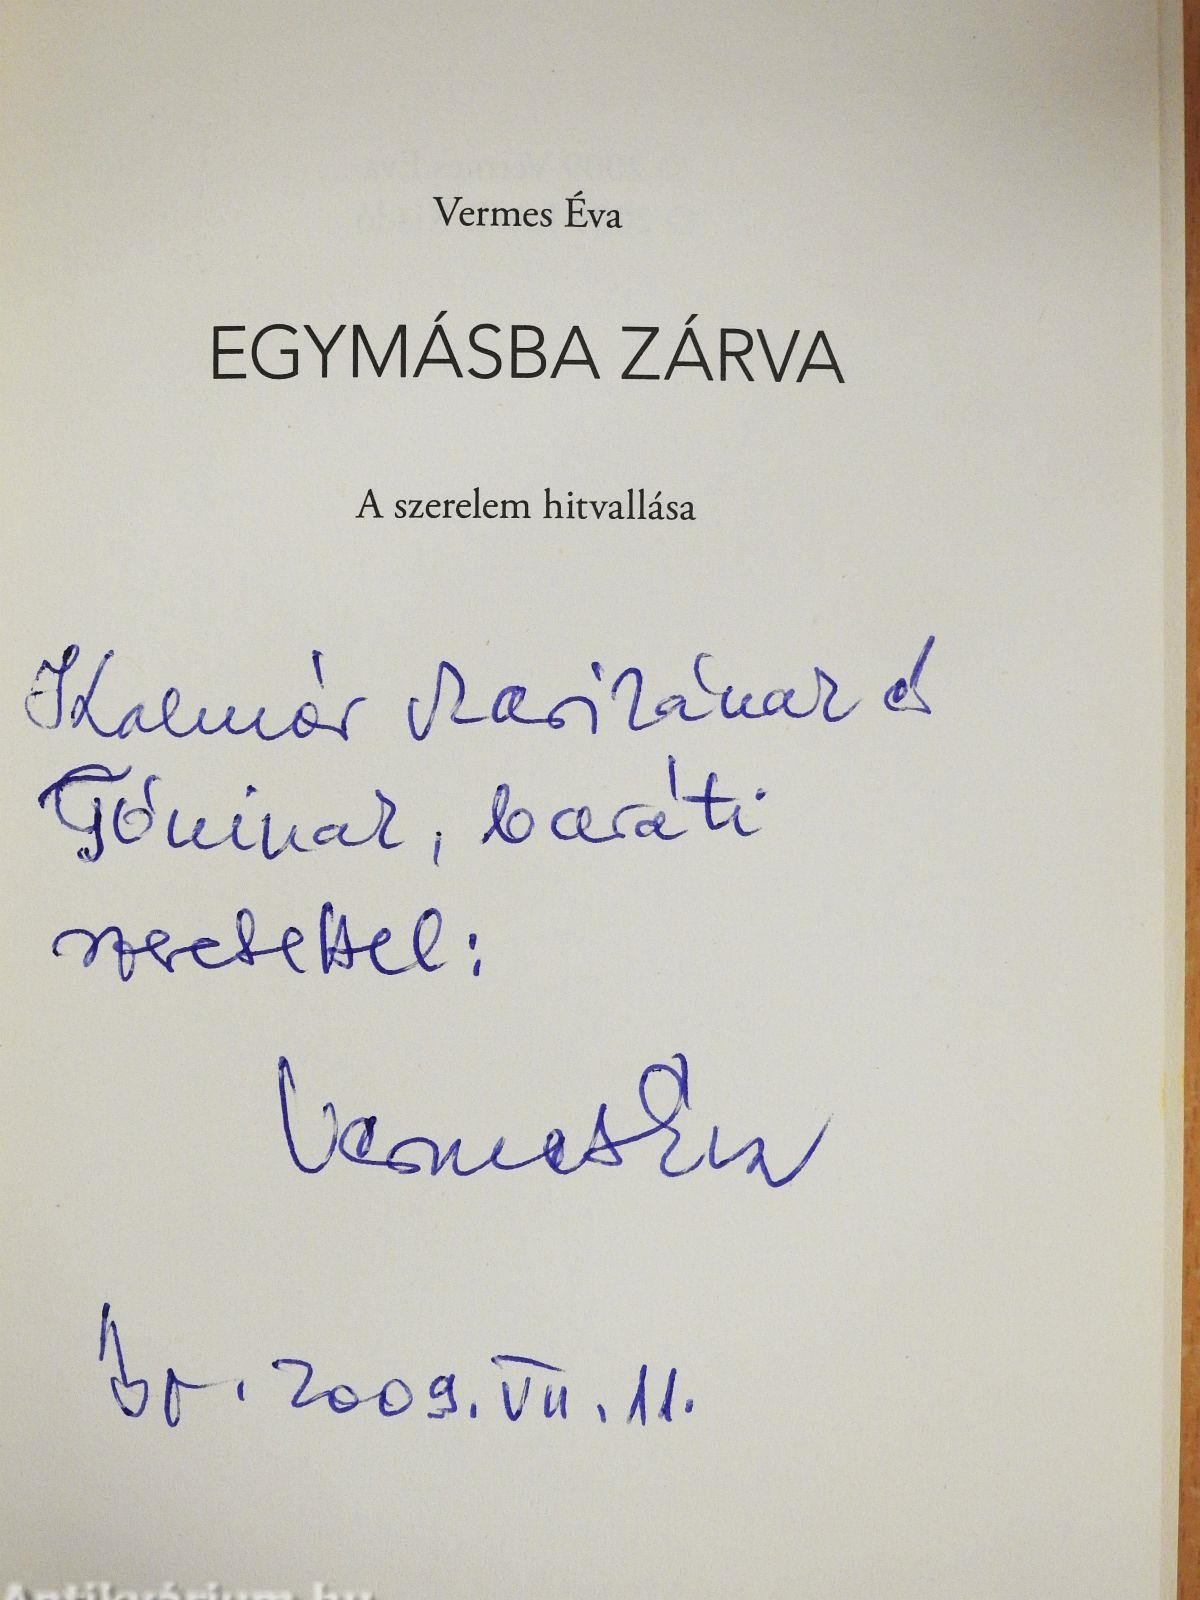 Vermes Éva
EGYMÁSBA ZÁRVA
A szerelem hitvallása
Kalmár Marikának és
Tóninak, baráti
szeretettel:
Vermes Éva
Bp. 2009. VII. 11.
Antikvárium.hu